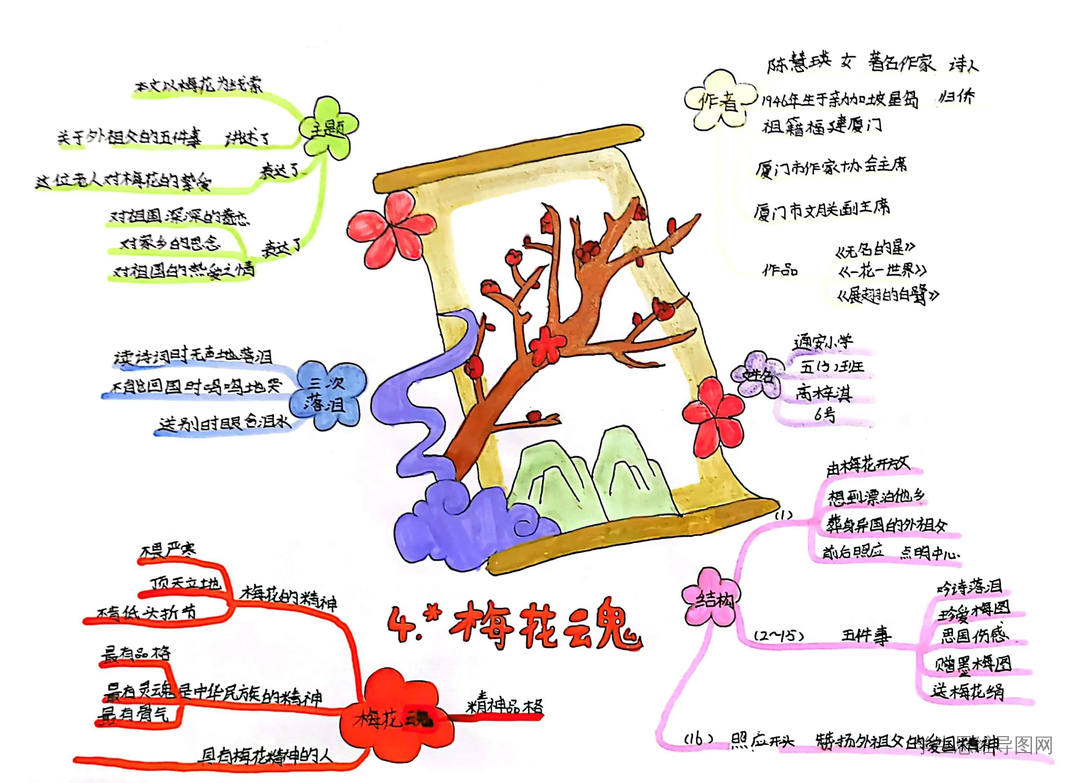 主题
本文以梅花为线索
关于外祖父的五件事 讲述了
这位老人对梅花的挚爱 表达了
对祖国深深的眷恋
对家乡的思念
对祖国的热爱之情
表达了
三次
落泪
读诗词时无声地落泪
不能回国时呜呜地哭
送别时眼含泪水
作者
陈慧瑛 女 著名作家 诗人
1946年生于新加坡星岛 归侨
祖籍福建厦门
厦门市作家协会主席
厦门市文联副主席
作品
《无名的星》
《一花一世界》
《展翅的白鹭》
姓名
通安小学
五(5)班
高梓淇
6号
4.*梅花云魂
梅花魂
梅花的精神
不畏严寒
顶天立地
不肯低头折节
最有品格
最有灵魂 是中华民族的精神
最有骨气
具有梅花精神的人
精神品格
结构
(1)
由梅花开放
想到漂泊他乡
葬身异国的外祖父
前后照应 点明中心
(2~15) 五件事
吟诗落泪
珍爱梅图
思国伤感
赠墨梅图
送梅花绢
(16) 照应开头 赞扬外祖父的爱国精神
导图网